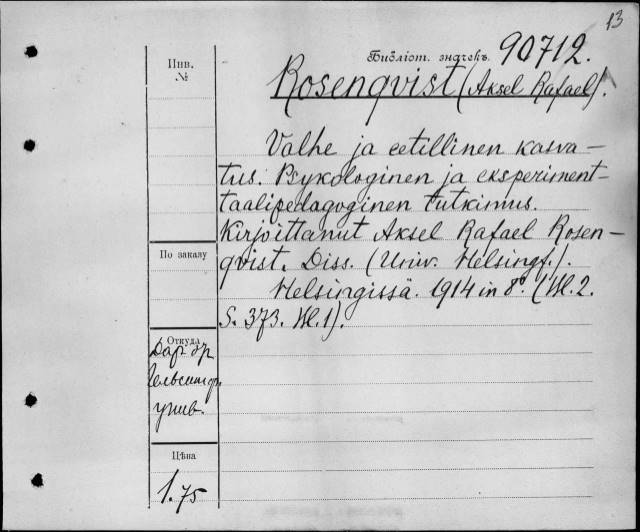 13
Библіот. значекъ. 90712.
Инв.
№
Rosenqvist (Aksel Rafael).
Valhe ja eetillinen kasva-
tus. Psykologinen ja eksperiment-
taalipedagoginen tutkimus.
Kirjoittanut Aksel Rafael Rosen-
qvist. Diss. (Univ. Helsingf.).
Helsingissä. 1914 in 8°. (Bl. 2.
S. 373. Bl. 1).
По заказу
Откуда
Дар
Гельсингф.
унив.
Цѣна
1.75